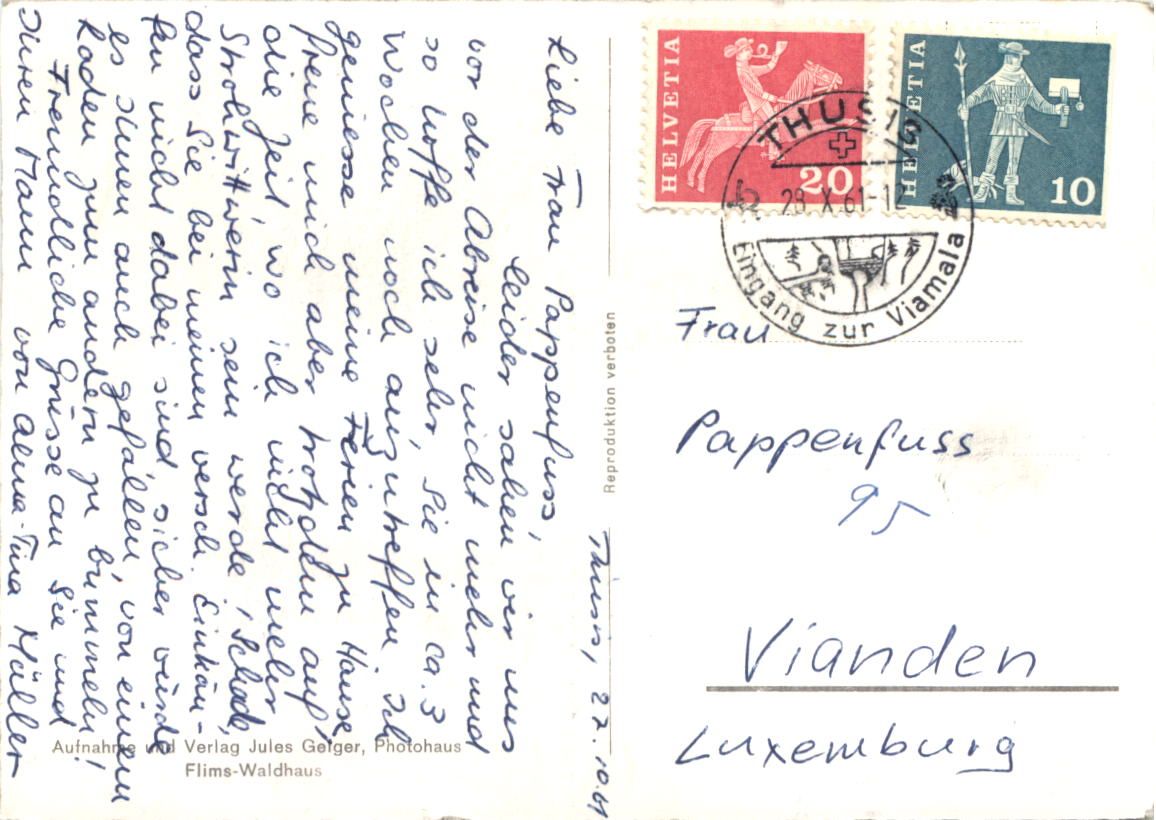 Thusis, 27.10.61
Liebe Frau Pappenfuss,
leider sahen wir uns
vor der Abreise nicht mehr und
so hoffe ich sehr, Sie in ca. 3
Wochen noch anzutreffen. Ich
geniesse meine Ferien zu Hause,
freue mich aber trotzdem auf
die Zeit, wo ich nicht mehr
Strohwittwerin sein werde! Schade,
dass Sie bei meinen versch. Einkäu-
fen nicht dabei sind, sicher würde
es Ihnen auch gefallen, von einem
Laden zum andern zu bummeln!
Freundliche Grüsse an Sie und
Ihren Mann von Alma-Tina Müller
Aufnahme und Verlag Jules Geiger, Photohaus
Flims-Waldhaus
Reproduktion verboten
HELVETIA
20
HELVETIA
10
THUSIS
28.X.61-12
Eingang zur Viamala
Frau
Pappenfuss
95
Vianden
Luxemburg